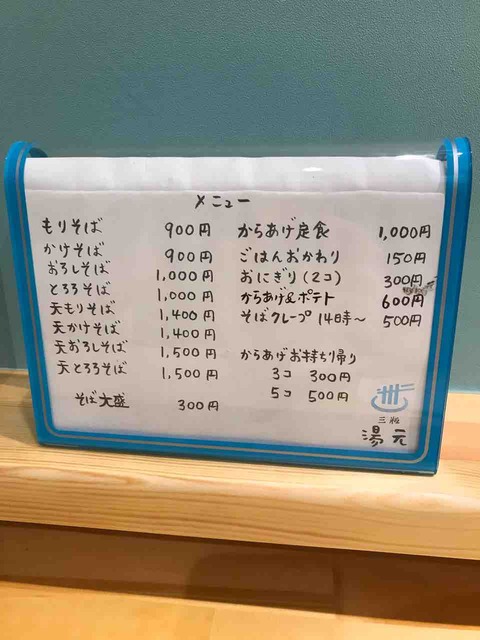 メニュー
もりそば 900円
かけそば 900円
おろしそば 1,000円
とろろそば 1,000円
天もりそば 1,400円
天かけそば 1,400円
天おろしそば 1,500円
天とろろそば 1,500円
そば大盛 300円
からあげ定食 1,000円
ごはんおかわり 150円
おにぎり(2コ) 300円
からあげ&ポテト 600円
そばクレープ 14時〜 500円
からあげお持ち帰り
3コ 300円
5コ 500円
三瓶
湯元